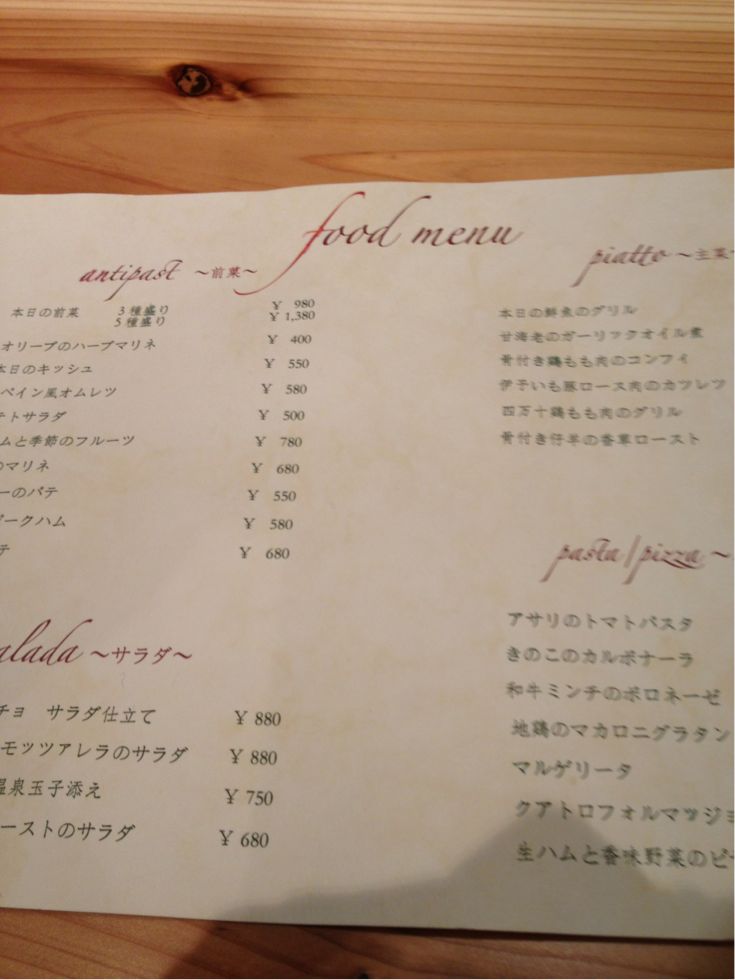 food menu
antipast ～前菜～
本日の前菜 3種盛り ¥ 980
5種盛り ¥ 1,380
オリーブのハーブマリネ ¥ 400
本日のキッシュ ¥ 550
ペイン風オムレツ ¥ 580
テトサラダ ¥ 500
ムと季節のフルーツ ¥ 780
のマリネ ¥ 680
ーのパテ ¥ 550
ークハム ¥ 580
テ ¥ 680
alada ～サラダ～
チョ サラダ仕立て ¥ 880
モッツアレラのサラダ ¥ 880
温泉玉子添え ¥ 750
ーストのサラダ ¥ 680
piatto ～主菜
本日の鮮魚のグリル
甘海老のガーリックオイル煮
骨付き鶏もも肉のコンフィ
伊予いも豚ロース肉のカツレツ
四万十鶏もも肉のグリル
骨付き仔羊の香草ロースト
pasta/pizza ～
アサリのトマトパスタ
きのこのカルボナーラ
和牛ミンチのボロネーゼ
地鶏のマカロニグラタン
マルゲリータ
クアトロフォルマッジョ
生ハムと香味野菜のピ